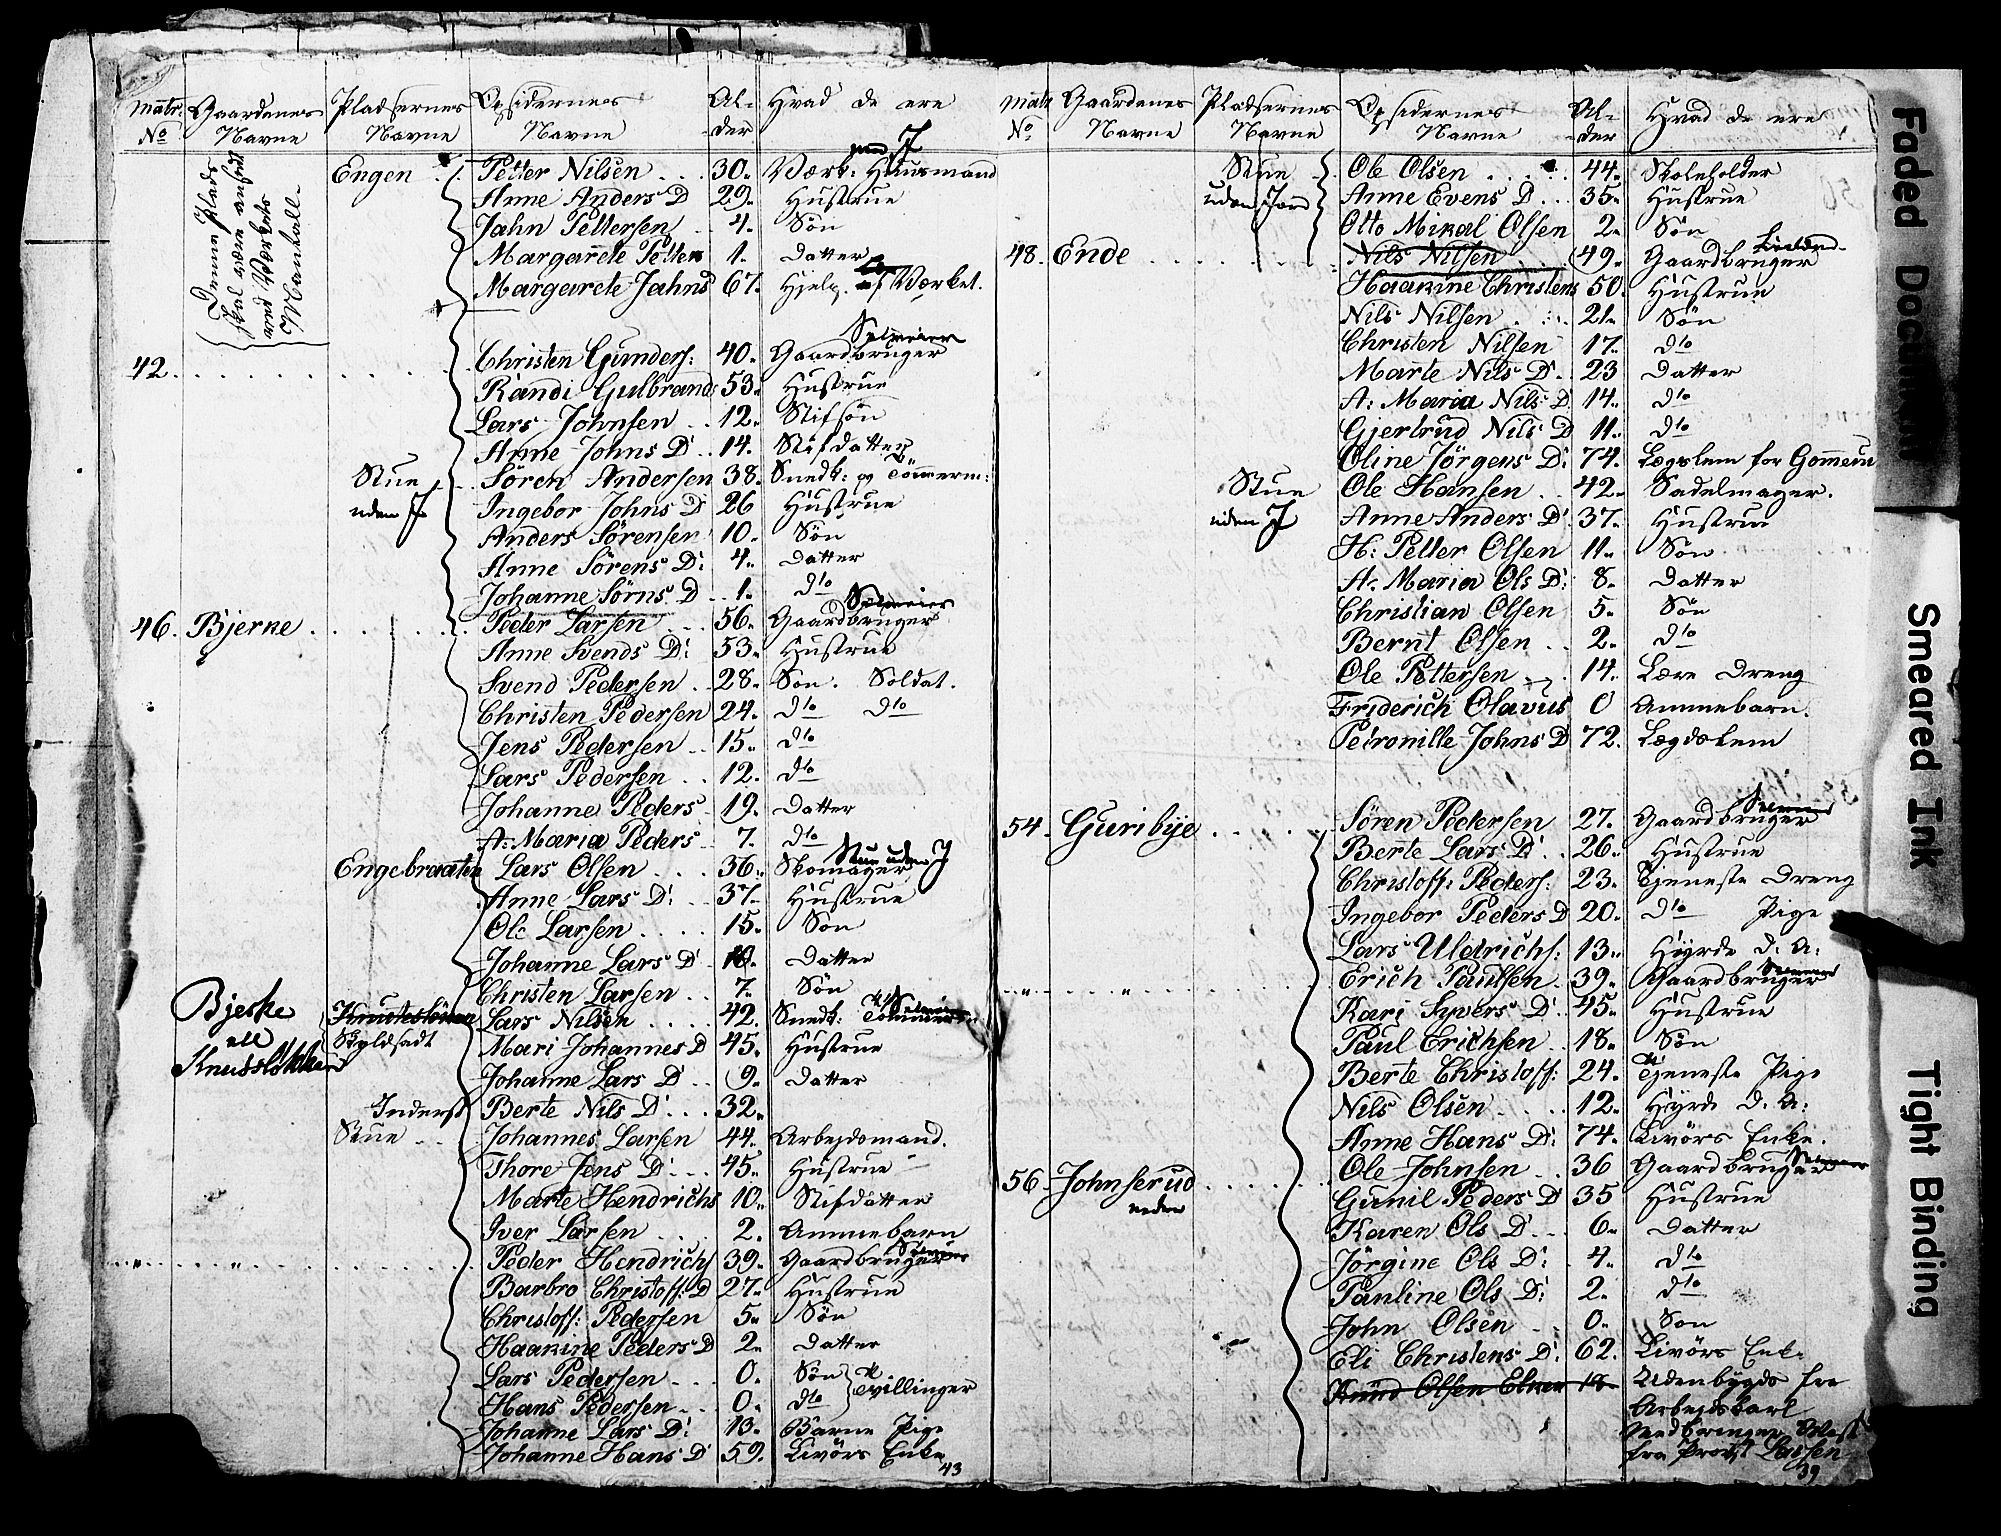 Matr: Gaardenes Pladsernes Opsidernes Al- Hvad de ere
No Navne Navne Navne der
Denne Plads
skal være anført
ved Værkets
Mantall
Engen Petter Nilsen 30. Værk: Huusmand med J
Anne Anders D 29. Hustrue
Jahn Pettersen 4. Søn
Margarete Petters 1. Datter
Margarete Jahns 67. Hjelp. af Værket.
Selveier
42. Christen Gunders: 40. Gaardbruger
Randi Gulbrands 53. Hustrue
Lars Johnsen 12. Stifsøn
Anne Johns D 14. Stifdatter
Stue Søren Andersen 38. Snedk: og Tömmerm:
uden J Ingebor Johns D 26 Hustrue
Anders Sörensen 10. Søn
Anne Sörens D: 4. Datter
Johanne Sörns D 1. Dto
Selveier
46. Bjerke Peder Larsen 56. Gaardbruger
Anne Svends D: 53. Hustrue
Svend Pedersen 28. Søn. Soldat.
Christen Pedersen 24. Dto Dto
Jens Pedersen 15. Dto
Lars Pedersen 12. Dto
Johanne Peders 19. Datter
A: Maria Peders 7. Dto
Stue uden J
Engebraaten Lars Olsen 36. Skomager
Anne Lars D: 37. Hustrue
Ole Larsen 15. Søn
Johanne Lars D 10. Datter
Christen Larsen 7. Søn
Bjerke Lars Nilsen 42. Snedk: Tömmerm:
ell Skyldsadt Mari Johannes D 45. Hustrue
Knudsløkken Johanne Lars D 9. Datter
Inderst Berte Nils D 32.
Stue Johannes Larsen 44. Arbejdsmand.
Thore Jens D: 45. Hustrue
Marte Hendrichs 10. Stifdatter
Iver Larsen 2. Ammebarn
Peder Hendrichs 39. Gaardbruger Selveier
Barbro Christoff: D 27. Hustrue
Christoff: Pedersen 5. Søn
Haakine Peders D 2. Datter
Lars Pedersen 0. Søn
Hans Pedersen 0. Dto Tvillinger
Johanne Lars D: 13. Barne Pige
Johanne Hans D 59. Livörs Enke
43
Matr Gaardenes Pladsernes Opsidernes Al- Hvad de ere
No Navne Navne Navne der
Stue Ole Olsen 44. Skoleholder
uden Jord Anne Evens D 35. Hustrue
Otto Mikal Olsen 2. Søn
48. Ende Nils Nilsen 49. Gaardbruger
Haakine Christens 50. Hustrue
Nils Nilsen 21. Søn
Christen Nilsen 17. Dto
Marte Nils D 23 Datter
A: Maria Nils D 14. Dto
Gjertrud Nils D 11. Dto
Oline Jörgens D: 74. Lægslem for Gommerud
Stue Ole Hansen 42. Sadelmager.
uden J Anne Anders D: 37. Hustrue
H: Petter Olsen 11. Søn
A: Maria Ols D: 8. Datter
Christian Olsen 5. Søn
Bernt Olsen 2. Dto
Ole Pettersen 14. Lære Dreng
Friderich Olavus 0 Ammebarn.
Petronille Johns D 72. Lægdslem
Selveier
54. Guribye Sören Pedersen 27. Gaardbruger
Berte Lars D 26. Hustrue
Christoff: Peders: 23. Tjeneste Dreng
Ingebor Peders D 20. Dto Pige
Lars Uldrichs: 13. Hyrde D. A:
Selveier
" " Erich Paulsen 39. Gaardbruger
Kari Syvers D: 45. Hustrue
Paul Erichsen 18. Søn
Berte Christoff: 24. Tjeneste Pige
Nils Olsen 12. Hyrde D. A:
Anne Hans D: 74. Livörs Enke.
56. Johnserud Ole Johnsen 36 Gaardbruger Selveier
nedre Gunil Peders D 35 Hustrue
Karen Ols D 6. Datter
Jörgine Ols D: 4. Dto
Pauline Ols D: 2. Dto
John Olsen 0. Søn
Eli Christens D: 62. Livörs Enke
Knud Olsen 18. Udenbygds fra
Arbejdskarl
Medbringer Attest
fra Provst Lassen
39
Faded Document
Smeared Ink
Tight Binding